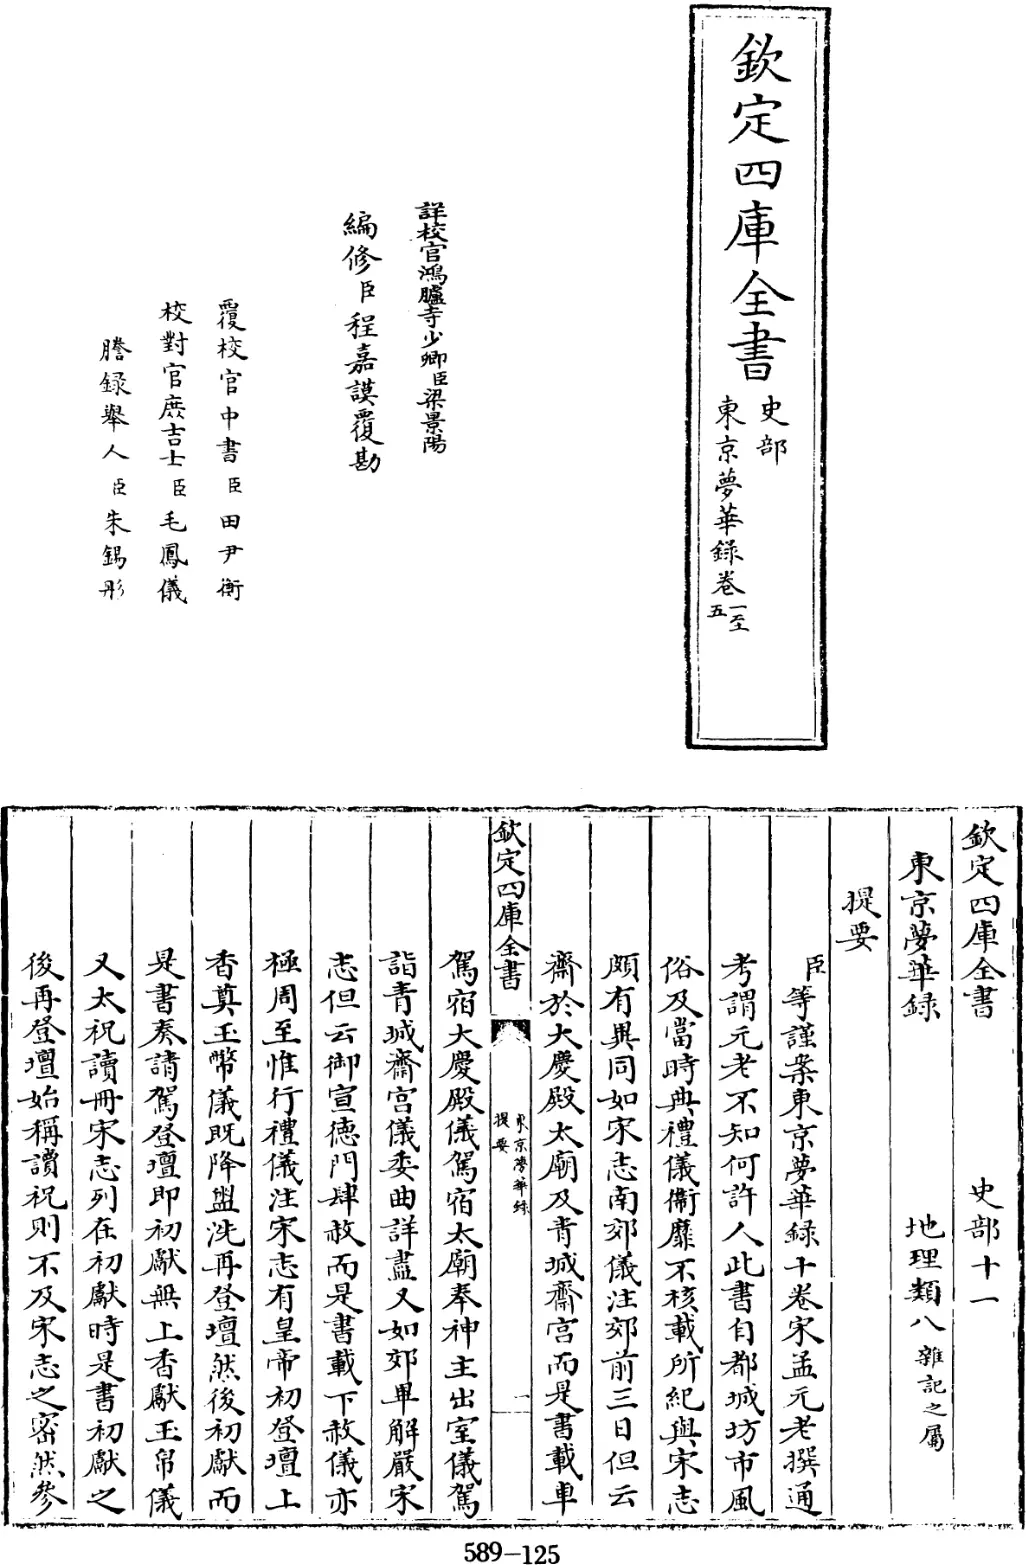 欽定四庫全書
史部
東京夢華錄卷一至五
詳校官鴻臚寺少卿臣梁景陽
編修臣程嘉謨覆勘
覆校官中書臣田尹衡
校對官庶吉士臣毛鳳儀
謄録舉人臣朱錫彤
欽定四庫全書 史部十一
東京夢華録 地理類八雜記之屬
提要
臣等謹案東京夢華録十卷宋孟元老撰通
考謂元老不知何許人此書自都城坊市風
俗及當時典禮儀衛靡不核載所紀與宋志
頗有異同如宋志南郊儀注郊前三日但云
齋於大慶殿太廟及青城齋宮而是書載車
欽定四庫全書
東京夢華録
提要
一
駕宿大慶殿儀駕宿太廟奉神主出室儀駕
詣青城齋宮儀委曲詳盡又如郊畢解嚴宋
志但云御宣徳門肆赦而是書載下赦儀亦
極周至惟行禮儀注宋志有皇帝初登壇上
香奠玉幣儀既降盥洗再登壇然後初獻而
是書奏請駕登壇即初獻無上香獻玉帛儀
又太祝讀冊宋志列在初獻時是書初獻之
後再登壇始稱讀祝則不及宋志之密然參
589-125